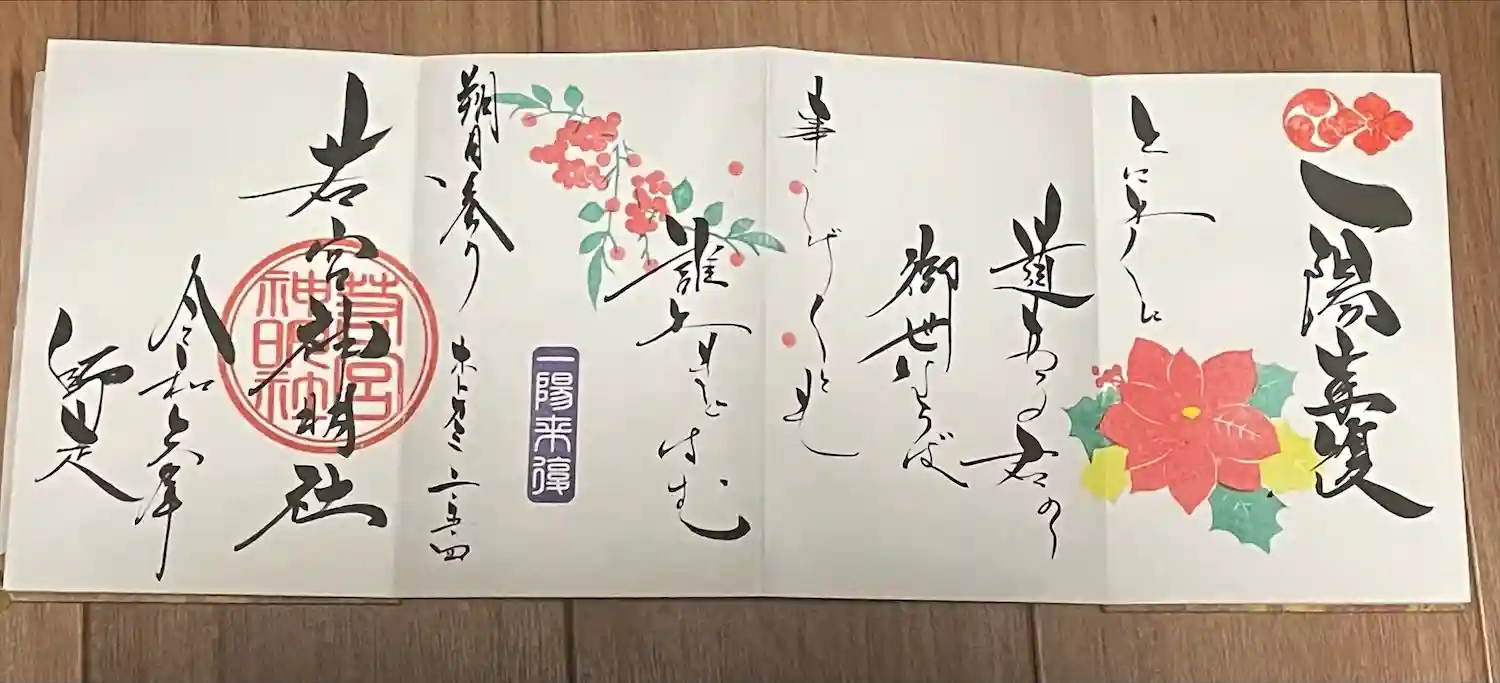 一陽来復
とにかくに
道ある君の
御世ならば
事しげくとも
誰かまどはむ
一陽来復
朔月参り
若宮神明社
若宮神明社
令和六年
師走